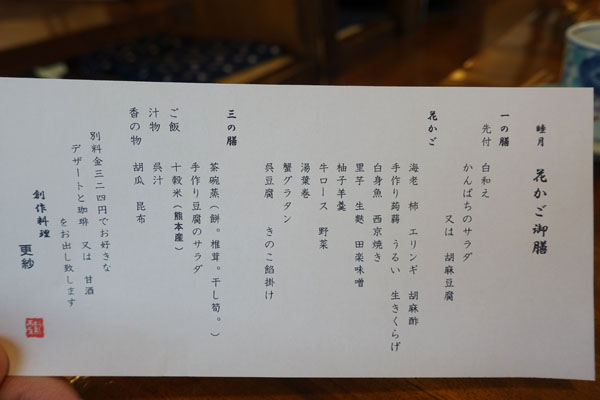 睦月　花かご御膳
一の膳
先付　白和え
かんぱちのサラダ
又は　胡麻豆腐
花かご
海老　柿　エリンギ　胡麻酢
手作り蒟蒻　うるい　生きくらげ
白身魚　西京焼き
里芋　生麩　田楽味噌
柚子羊羹
牛ロース　野菜
湯葉巻
蟹グラタン
呉豆腐　きのこ餡掛け
三の膳
茶碗蒸（餅。椎茸。干し筍。）
手作り豆腐のサラダ
ご飯　十穀米（熊本産）
汁物　呉汁
香の物　胡瓜　昆布
別料金三二四円でお好きな
デザートと珈琲　又は　甘酒
をお出し致します
創作料理　更紗